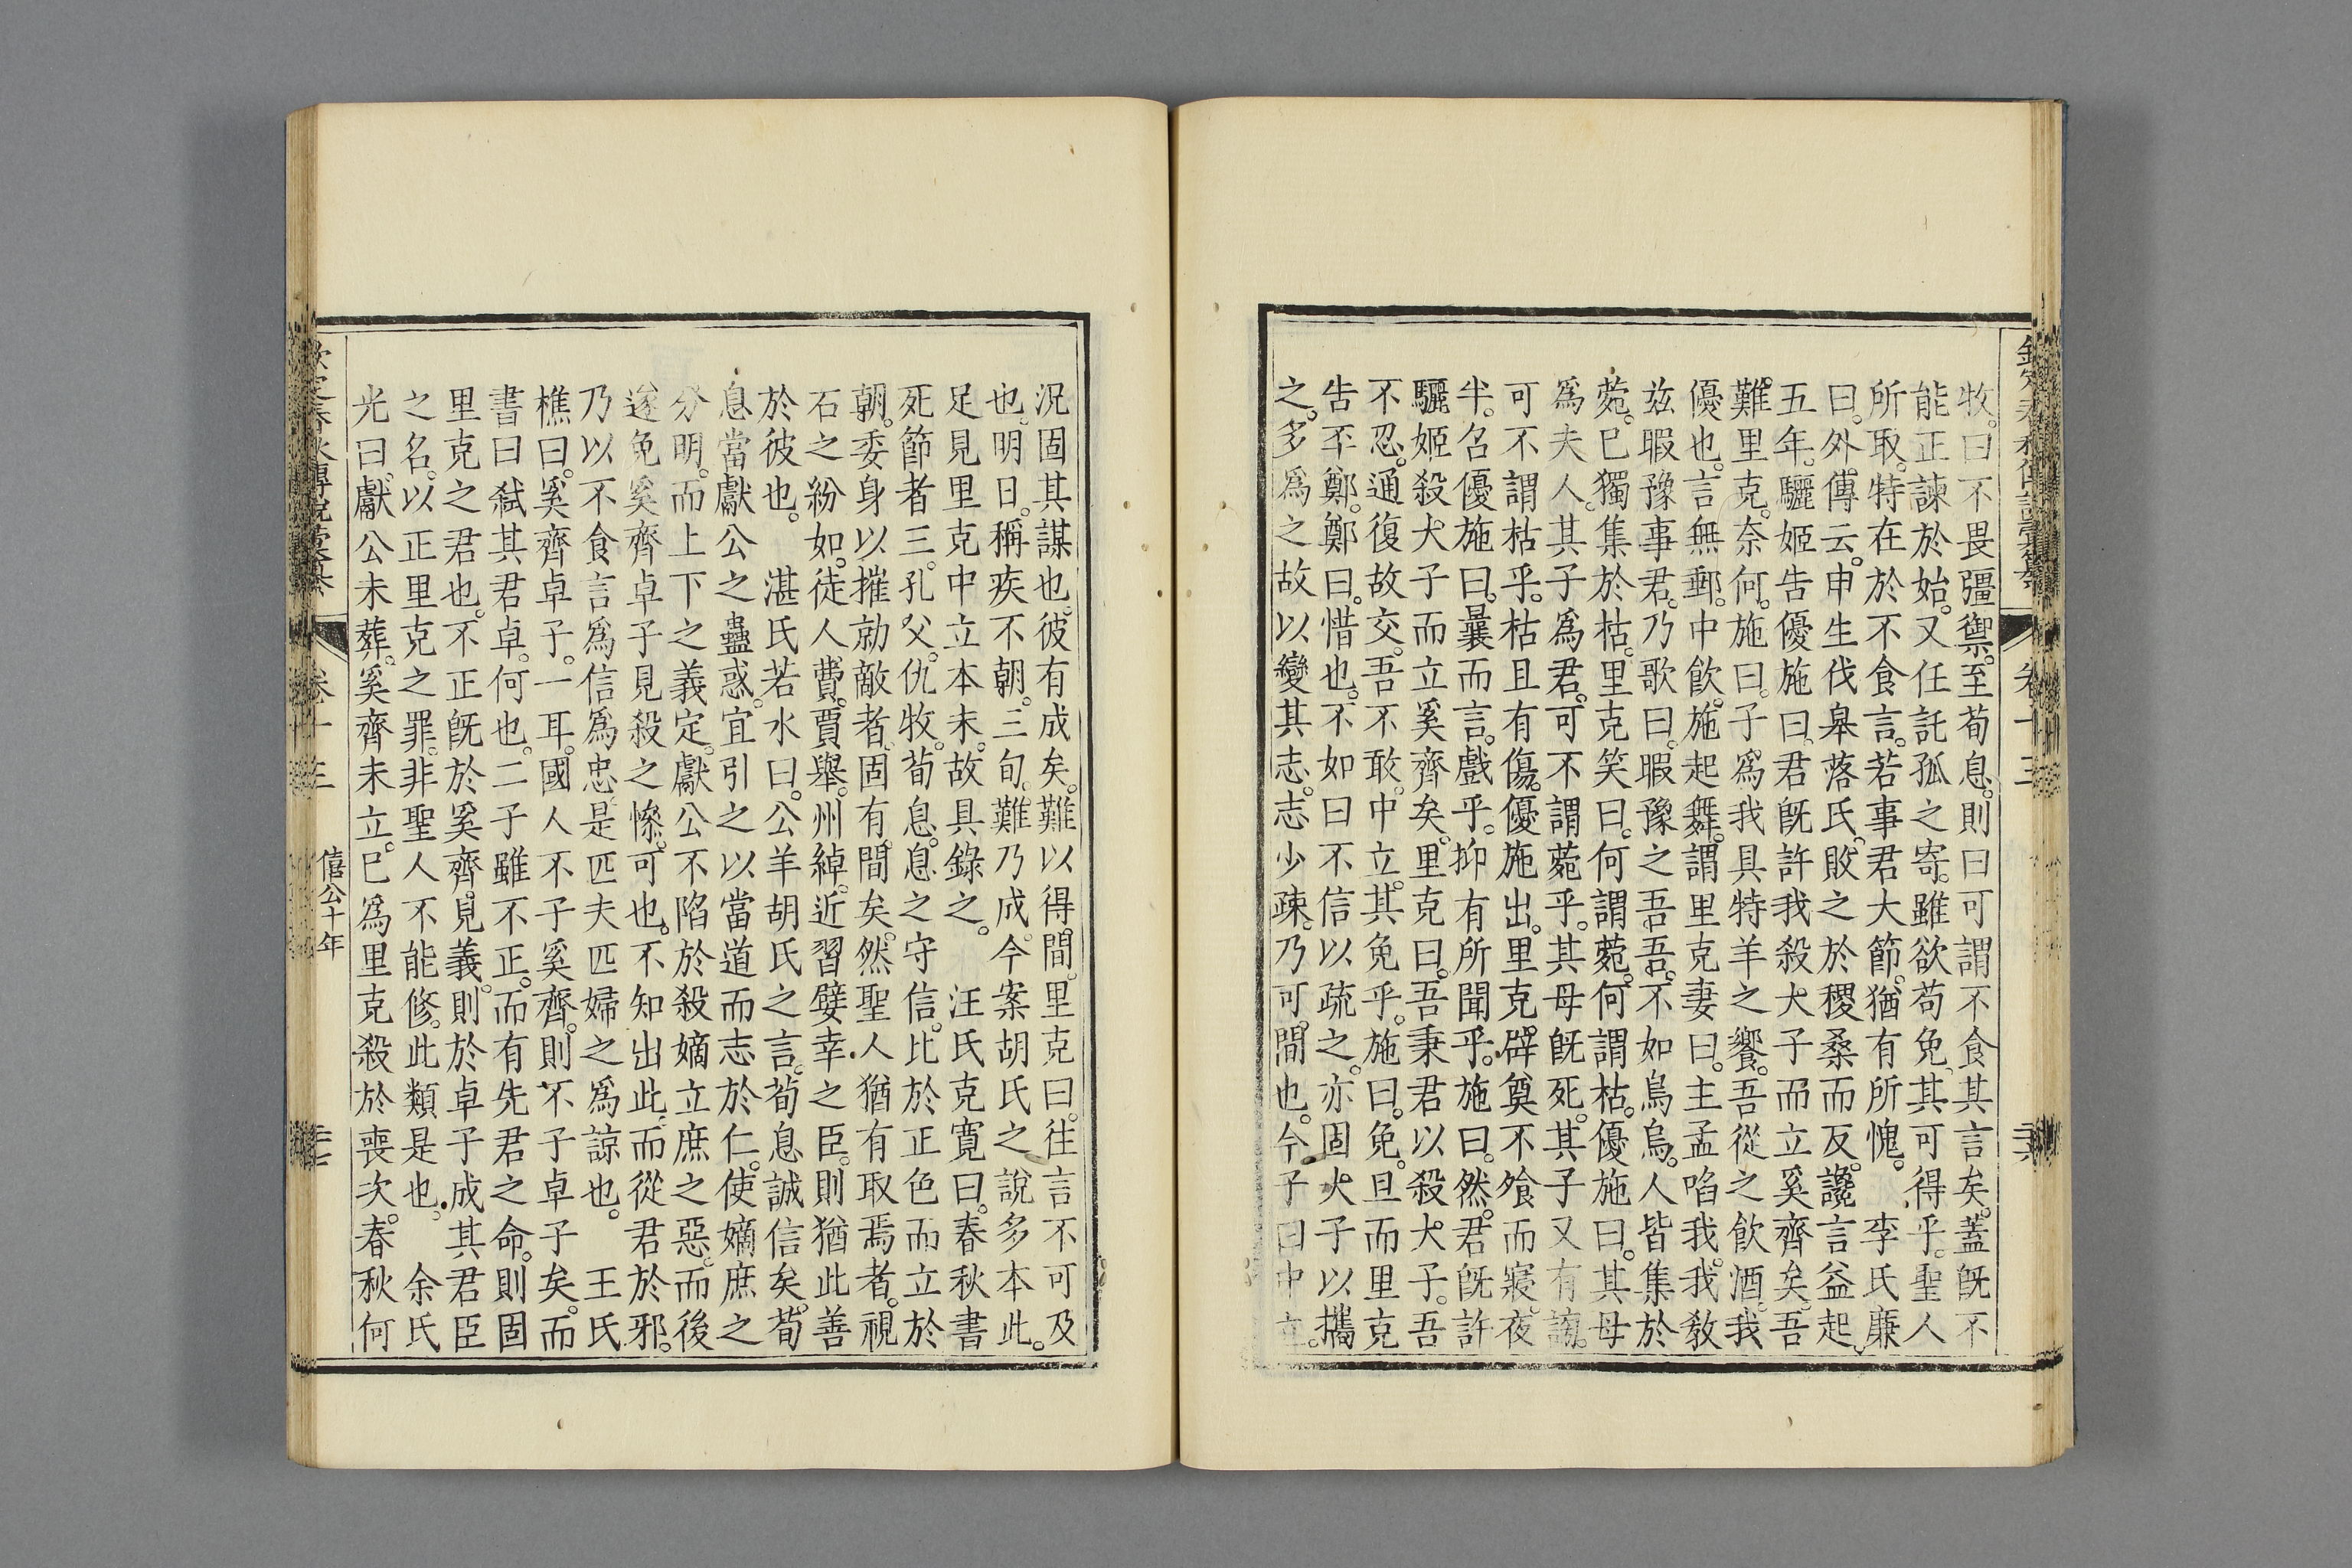 牧。曰不畏彊禦。至荀息。則曰可謂不食其言矣。蓋旣不
能正諫於始。又任託孤之寄。雖欲苟免、其可得乎。聖人
所取。特在於不食言。若事君大節。猶有所愧。　李氏廉
曰。外傳云。申生伐皋落氏。敗之於稷桑而反。讒言益起。
五年。驪姬告優施曰。君旣許我殺大子而立奚齊矣。吾
難里克。奈何。施曰。子爲我具特羊之饗。吾從之飲酒。我
優也。言無郵。中飲。施起舞。謂里克妻曰。主孟啗我。我敎
茲暇豫事君。乃歌曰。暇豫之吾吾。不如鳥烏。人皆集於
菀。已獨集於枯。里克笑曰。何謂菀。何謂枯。優施曰。其母
爲夫人。其子爲君。可不謂菀乎。其母旣死。其子又有謗。
可不謂枯乎。枯且有傷。優施出。里克辟奠不飧而寢。夜
半。召優施曰。曩而言。戲乎。抑有所聞乎。施曰。然。君旣許
驪姬殺大子而立奚齊矣。里克曰。吾秉君以殺大子。吾
不忍。通復故交。吾不敢。中立。其免乎。施曰。免。旦而里克
告丕鄭。鄭曰。惜也。不如曰不信以疏之。亦固大子以攜
之。多爲之故以變其志。志少疎。乃可間也。今子曰中立。
況固其謀也。彼有成矣。難以得間。里克曰。往言不可及
也。明日。稱疾不朝。三旬。難乃成。今案胡氏之說多本此。
足見里克中立本末。故具錄之。　汪氏克寬曰。春秋書
死節者三。孔父。仇牧。荀息。息之守信。比於正色而立於
朝。委身以摧勍敵者。固有間矣。然聖人猶有取焉者。視
石之紛如。徒人費。賈舉。州綽。近習嬖幸之臣。則猶此善
於彼也。　湛氏若水曰。公羊胡氏之言。荀息誠信矣。荀
息當獻公之蠱惑。宜引之以當道而志於仁。使嫡庶之
分明。而上下之義定。獻公不陷於殺嫡立庶之惡。而後
遂免奚齊卓子見殺之慘。可也。不知出此。而從君於邪。
乃以不食言爲信爲忠。是匹夫匹婦之爲諒也。　王氏
樵曰。奚齊卓子。一耳。國人不子奚齊。則不子卓子矣。而
書曰弑其君卓。何也。二子雖不正。而有先君之命。則固
里克之君也。不正旣於奚齊。見義。則於卓子成其君臣
之名。以正里克之罪。非聖人不能修。此類是也。　余氏
光曰。獻公未葬。奚齊未立。已爲里克殺於喪次。春秋何
欽定春秋傳說彙纂　卷十三　僖公十年